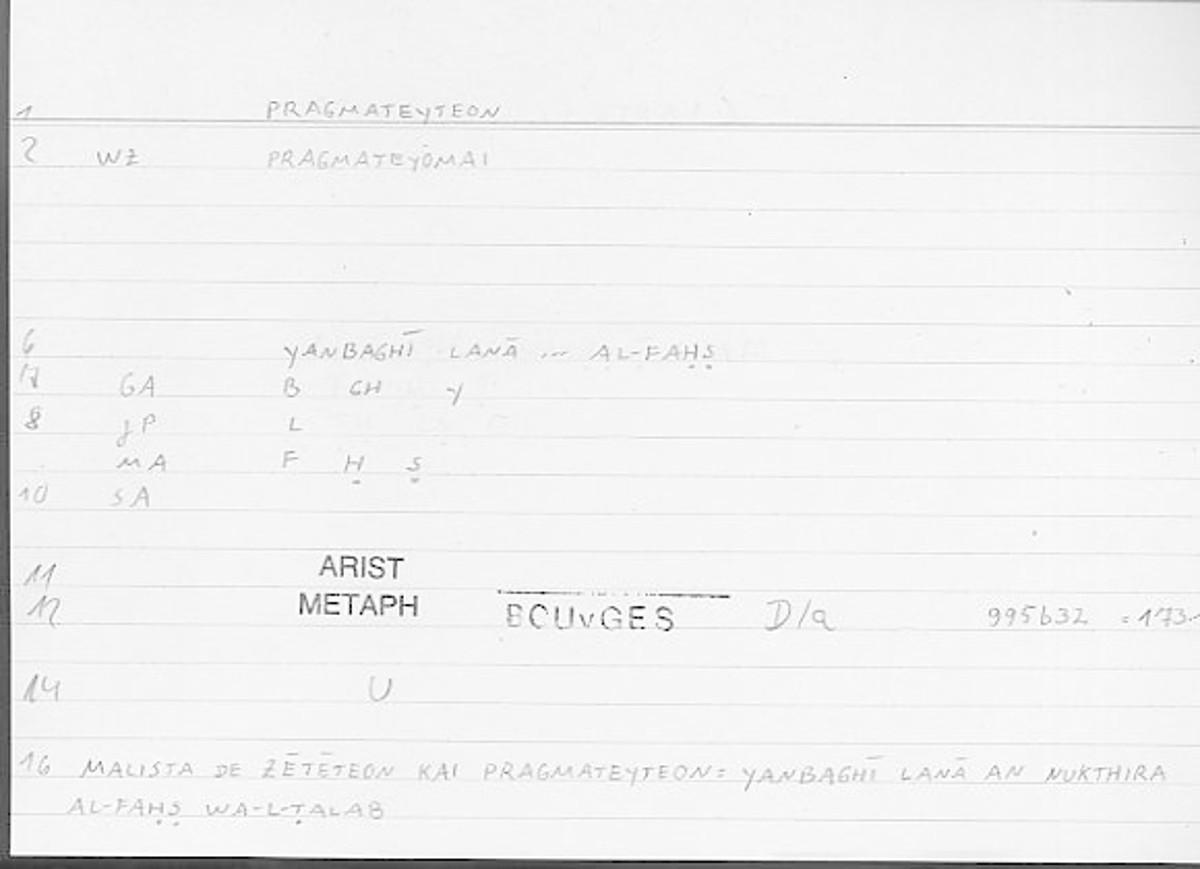 1 PRAGMATEYTEON
2 WZ PRAGMATEYOMAI
6 YANBAGHĪ LANĀ ... AL-FAḤṢ
7 GA B GH Y
8 JP L
MA F Ḥ Ṣ
10 SA
11 ARIST
12 METAPH BOUvGES D/a 995b32 =173
14 U
16 MALISTA DE ZĒTĒTEON KAI PRAGMATEYTEON= YANBAGHĪ LANĀ AN NUKTHIRA
AL-FAḤṢ WA-L-ṬALAB